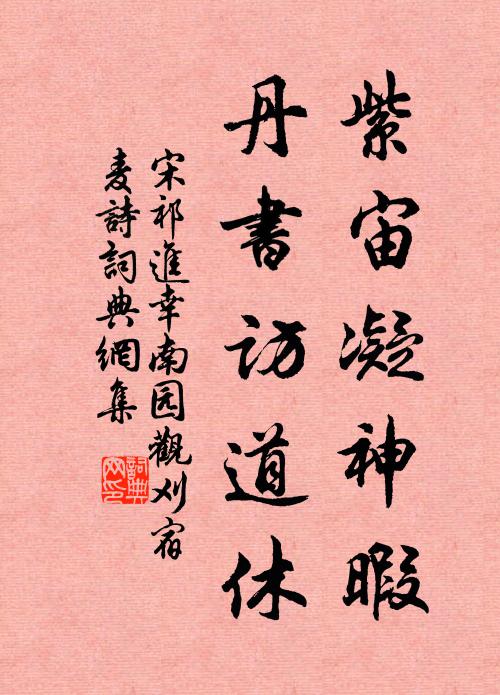 紫宙凝神暇
丹書访道休
宋祁進幸南园觀刈宿
麦詩詞典網集
詞典网印